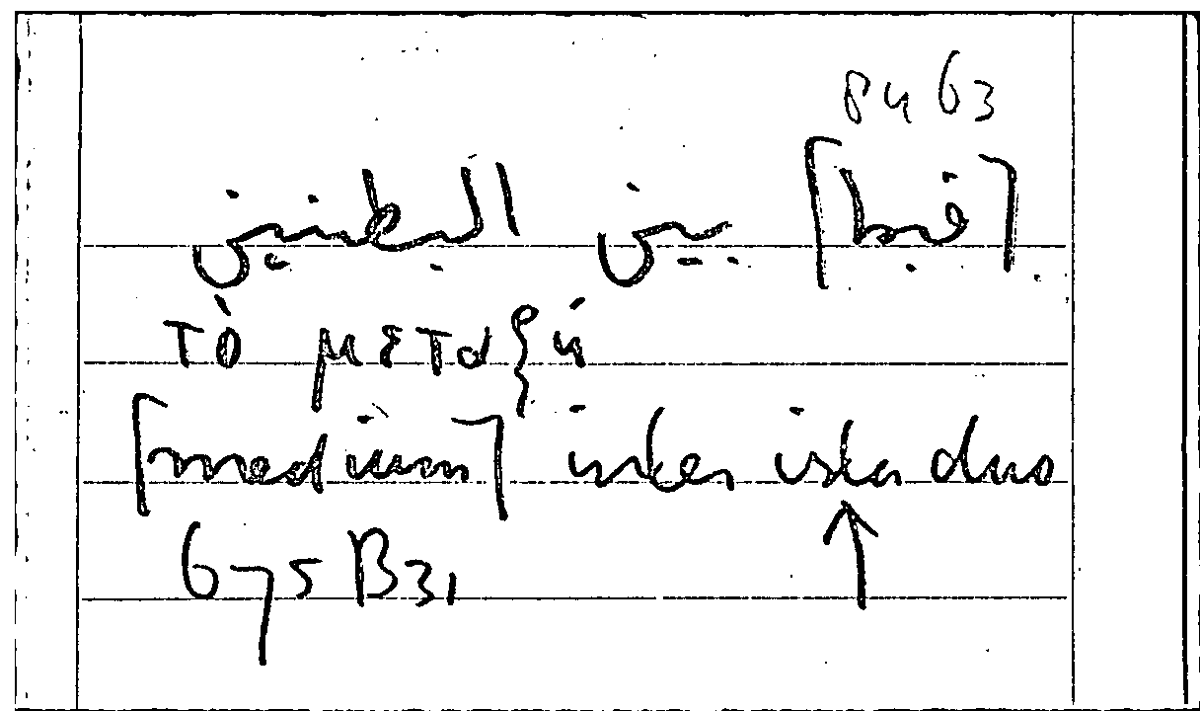 84 63
⌈فيما⌉ بين البطنين
τὸ μεταξύ
⌈medium⌉ inter ista duo
↑
675 B31